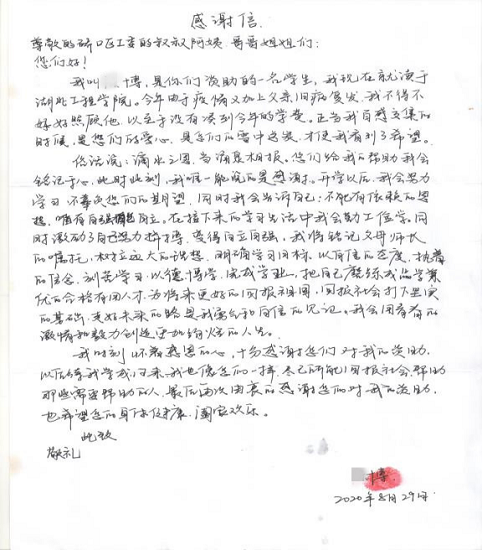 感谢信
尊敬的硚口区工委的叔叔阿姨、哥哥姐姐们:
您们好!
我叫 博,是你们资助的一名学生,我现在就读于
湖北工程学院。今年由于疫情又加上父亲旧病复发,我不得不
好好照顾他,以至于没有凑到今年的学费。正当我百感交集的
时候,是您们的爱心,是你们的雪中送炭,才使我看到了希望。
俗话说:滴水之恩,当涌泉相报。您们给我的帮助我会
铭记于心,此时此刻,我唯一能说的是感谢。开学以后,我会努力
学习,不辜负您们的期望,同时我会告诉自己:不能有依赖的思
想,唯有自强 自立。在接下来的学习生活中我会勤工俭学,同
时激励了自己努力拼搏,变得自立自强。我将铭记父母师长
的嘱托,树立远大的理想,明确学习目标,以自信的态度,执着
的信念,刻苦学习,以德博学,完成学业,把自己锻炼成品学兼
优的合格有用人才,为将来更好的回报祖国,回报社会打下坚实
的基础,美好未来的路是我奋斗和自信的见证。我会用青春的
激情和毅力创造更加辉煌的人生。
我时刻怀着感恩的心,十分感谢您们对我的资助。
以后待我学成归来,我也像您们一样,尽己所能回报社会,帮助
那些需要帮助的人,最后再次由衷的感谢您们对我的资助,
也希望您们身体健康,阖家欢乐。
此致
敬礼
博
2020年8月29日